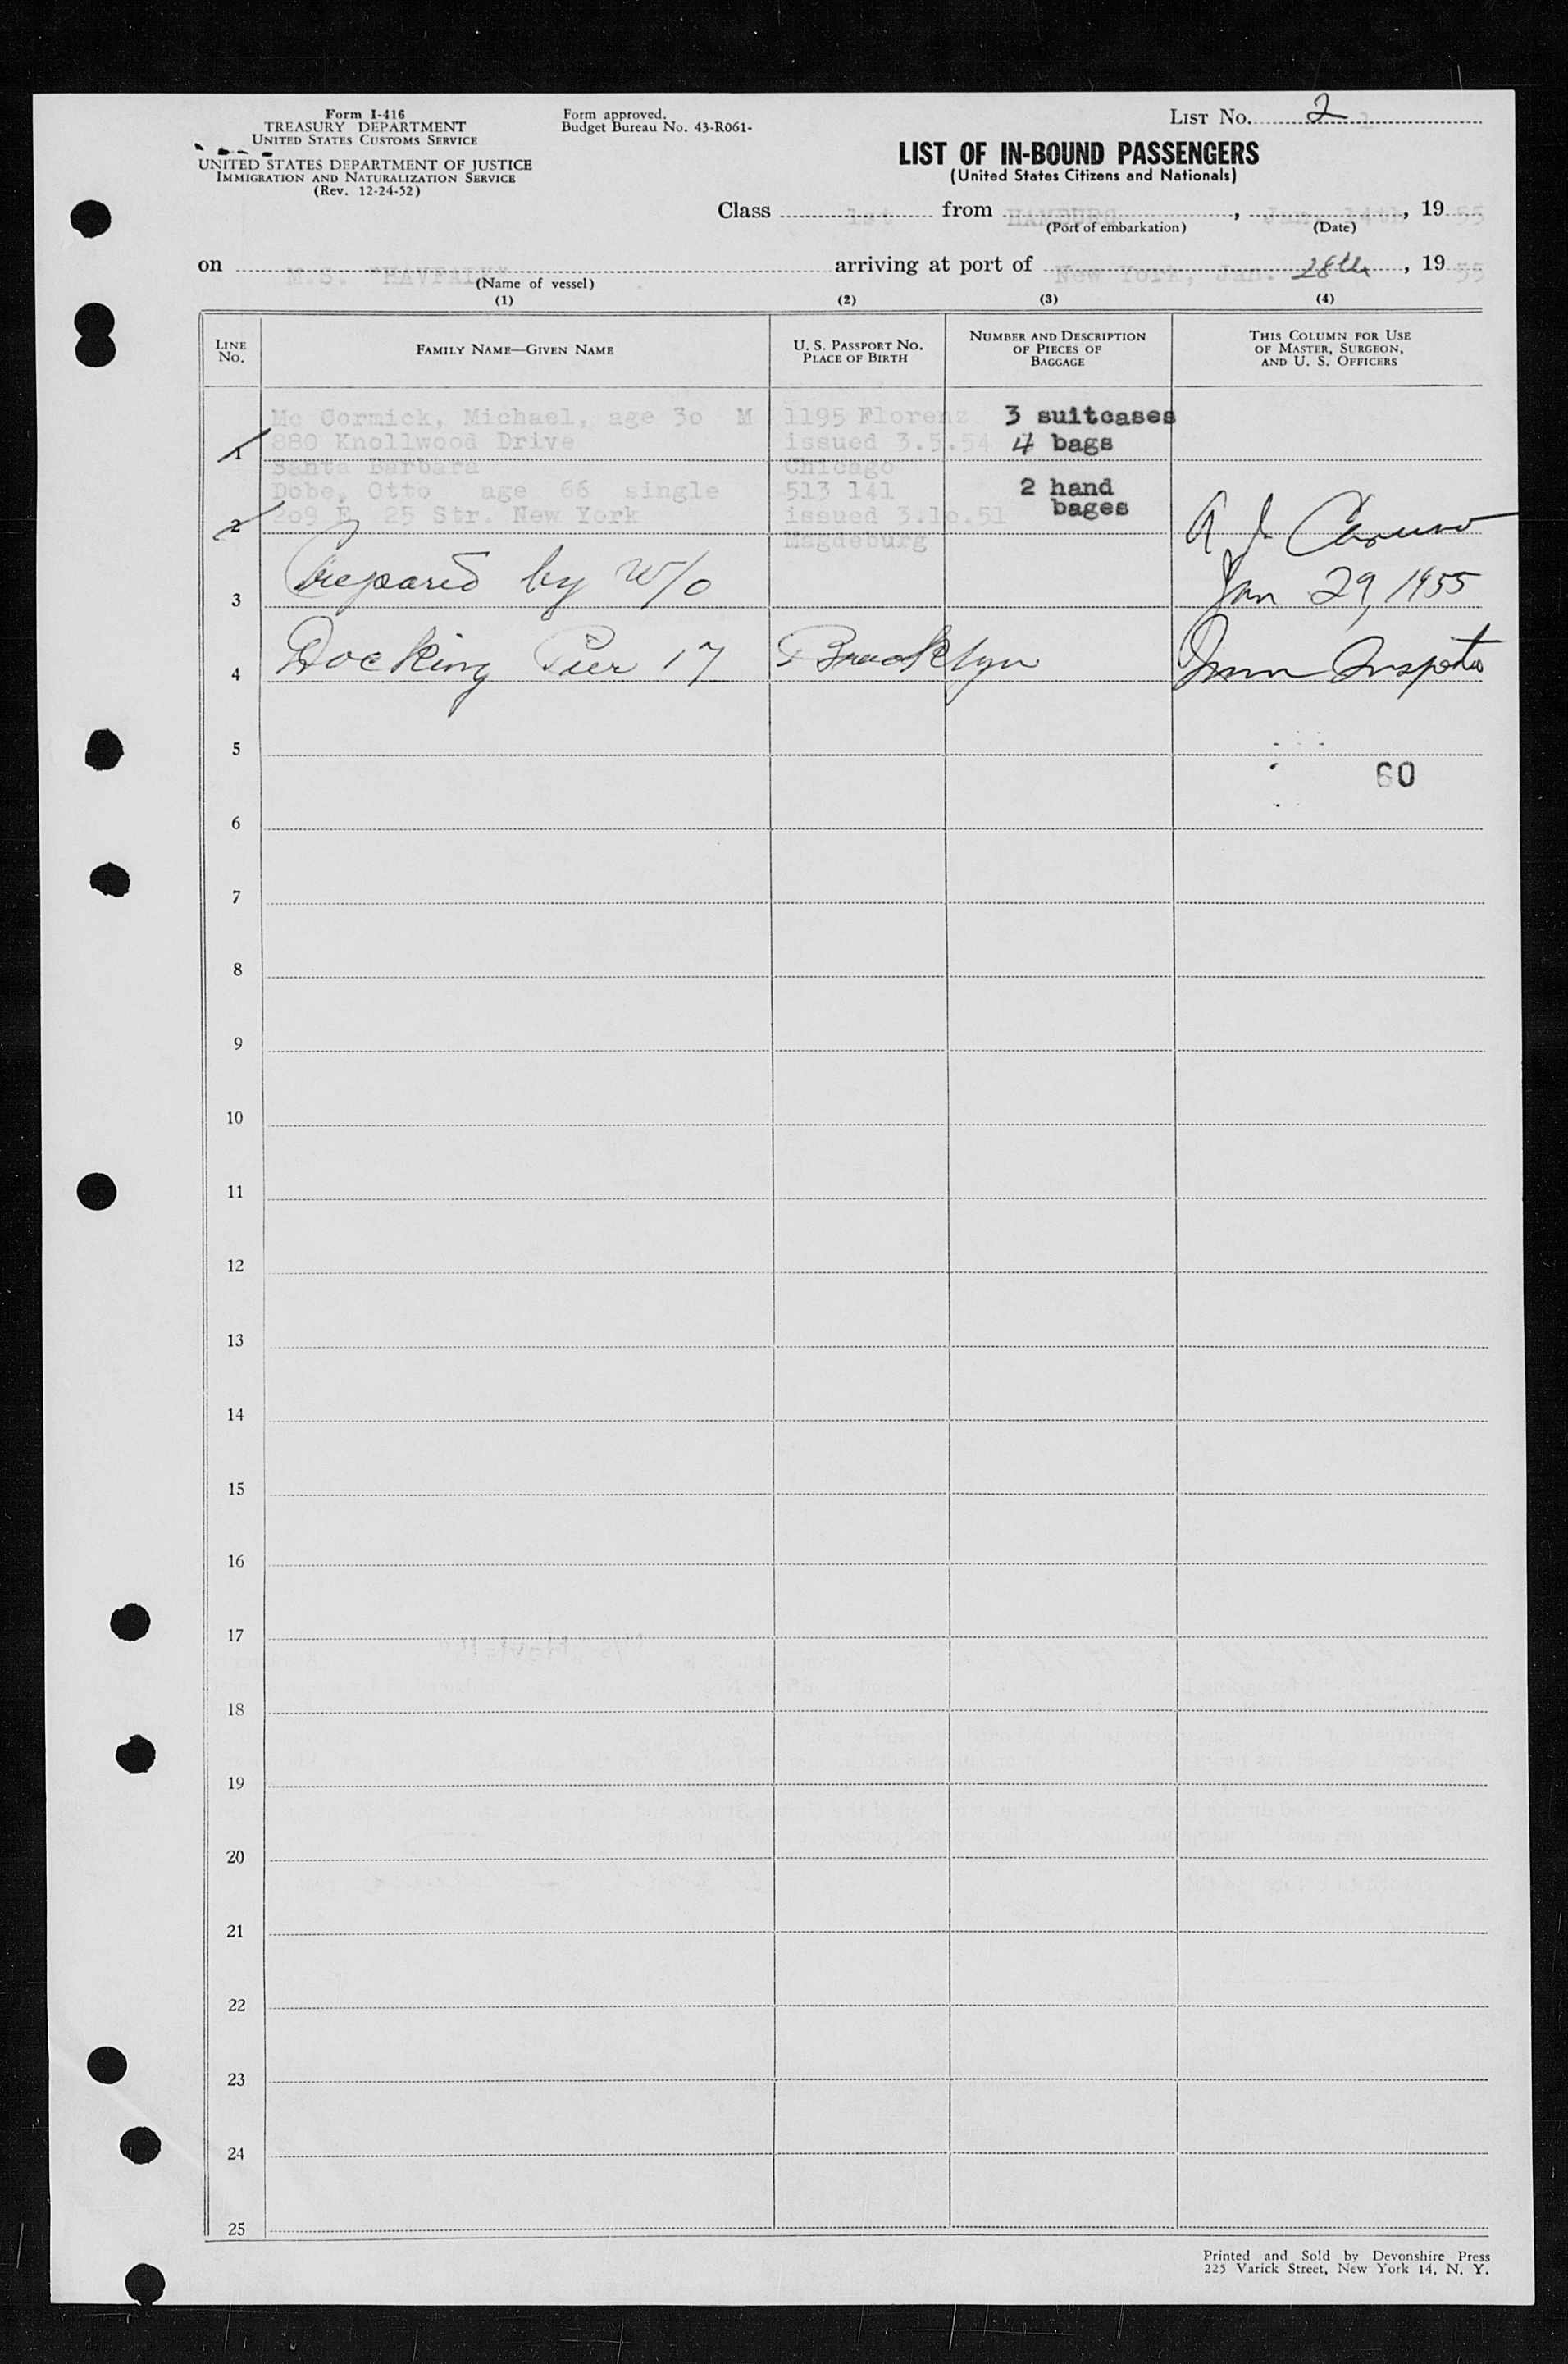 Form I-416
TREASURY DEPARTMENT
UNITED STATES CUSTOMS SERVICE
UNITED STATES DEPARTMENT OF JUSTICE
IMMIGRATION AND NATURALIZATION SERVICE
(Rev. 12-24-52)
Form approved.
Budget Bureau No. 43-R061-
LIST No. 2
LIST OF IN-BOUND PASSENGERS
(United States Citizens and Nationals)
Class 1st from HAMBURG, Jan. 14th, 1955
(Port of embarkation) (Date)
on M.S. "HAVFALK" arriving at port of New York, Jan. 28th, 1955
(Name of vessel)
(1) (2) (3) (4)
LINE No.
FAMILY NAME—GIVEN NAME
U. S. PASSPORT NO.
PLACE OF BIRTH
NUMBER AND DESCRIPTION
OF PIECES OF
BAGGAGE
THIS COLUMN FOR USE
OF MASTER, SURGEON,
AND U. S. OFFICERS
Mc Cormick, Michael, age 3o M 1195 Florenz 3 suitcases
1 880 Knollwood Drive issued 3.5.54 4 bags
Santa Barbara Chicago
Dobe, Otto age 66 single 513 141 2 hand
2 2o9 E 25 Str. New York issued 3.1o.51 bages
Magdeburg
A J Caruso
3 Prepared by W/o Jan 29, 1955
4 Docking Pier 17 Brooklyn Imm Inspector
5
60
6
7
8
9
10
11
12
13
14
15
16
17
18
19
20
21
22
23
24
25
Printed and Sold by Devonshire Press
225 Varick Street, New York 14, N. Y.